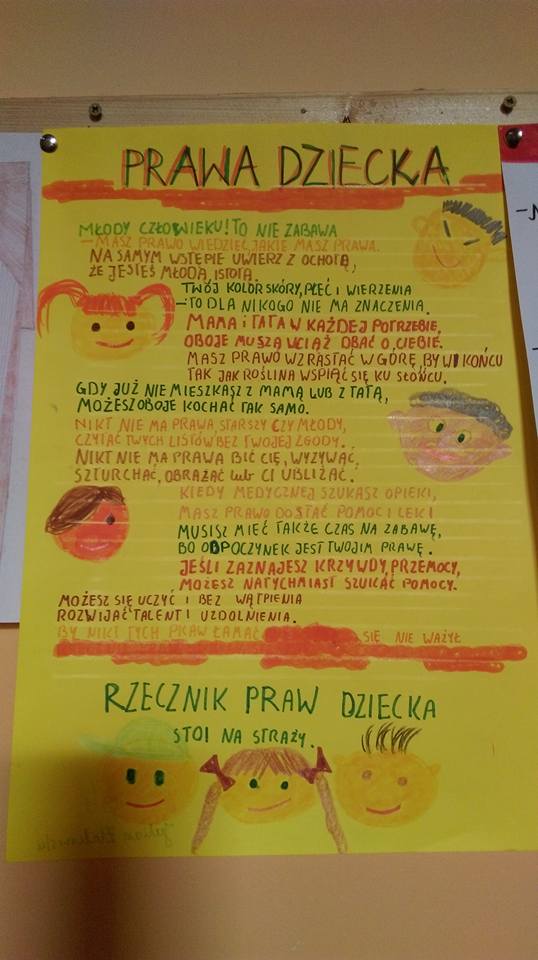 PRAWA DZIECKA
MŁODY CZŁOWIEKU! TO NIE ZABAWA
– MASZ PRAWO WIEDZIEĆ, JAKIE MASZ PRAWA.
NA SAMYM WSTĘPIE UWIERZ Z OCHOTĄ,
ŻE JESTEŚ MŁODĄ, ISTOTĄ.
TWÓJ KOLOR SKÓRY, PŁEĆ I WIERZENIA
– TO DLA NIKOGO NIE MA ZNACZENIA.
MAMA i TATA W KAŻDEJ POTRZEBIE,
OBOJE MUSZĄ WCIĄŻ DBAĆ O CIEBIE.
MASZ PRAWO WZRASTAĆ W GÓRĘ, BY W KOŃCU
TAK JAK ROŚLINA WSPIĄĆ SIĘ KU SŁOŃCU.
GDY JUŻ NIE MIESZKASZ Z MAMĄ LUB Z TATĄ,
MOŻESZ OBOJE KOCHAĆ TAK SAMO.
NIKT NIE MA PRAWA STARSZY CZY MŁODY,
CZYTAĆ TWYCH LISTÓW BEZ TWOJEJ ZGODY.
NIKT NIE MA PRAWA BIĆ CIĘ, WYZYWAĆ,
SZTURCHAĆ, OBRAŻAĆ lub CI UBLIŻAĆ.
KIEDY MEDYCZNEJ SZUKASZ OPIEKI,
MASZ PRAWO DOSTAĆ POMOC I LEKI
MUSISZ MIEĆ TAKŻE CZAS NA ZABAWĘ,
BO ODPOCZYNEK JEST TWOJIM PRAWĘ.
JEŚLI ZAZNAJESZ KRZYWDY, PRZEMOCY,
MOŻESZ NATYCHMIAST SZUKAĆ POMOCY.
MOŻESZ SIĘ UCZYĆ I BEZ WĄTPIENIA
ROZWIJAĆ TALENT I UZDOLNIENIA.
BY NIKT TYCH PRAW ŁAMAĆ SIĘ NIE WAŻYŁ
RZECZNIK PRAW DZIECKA
STOI NA STRAŻY.